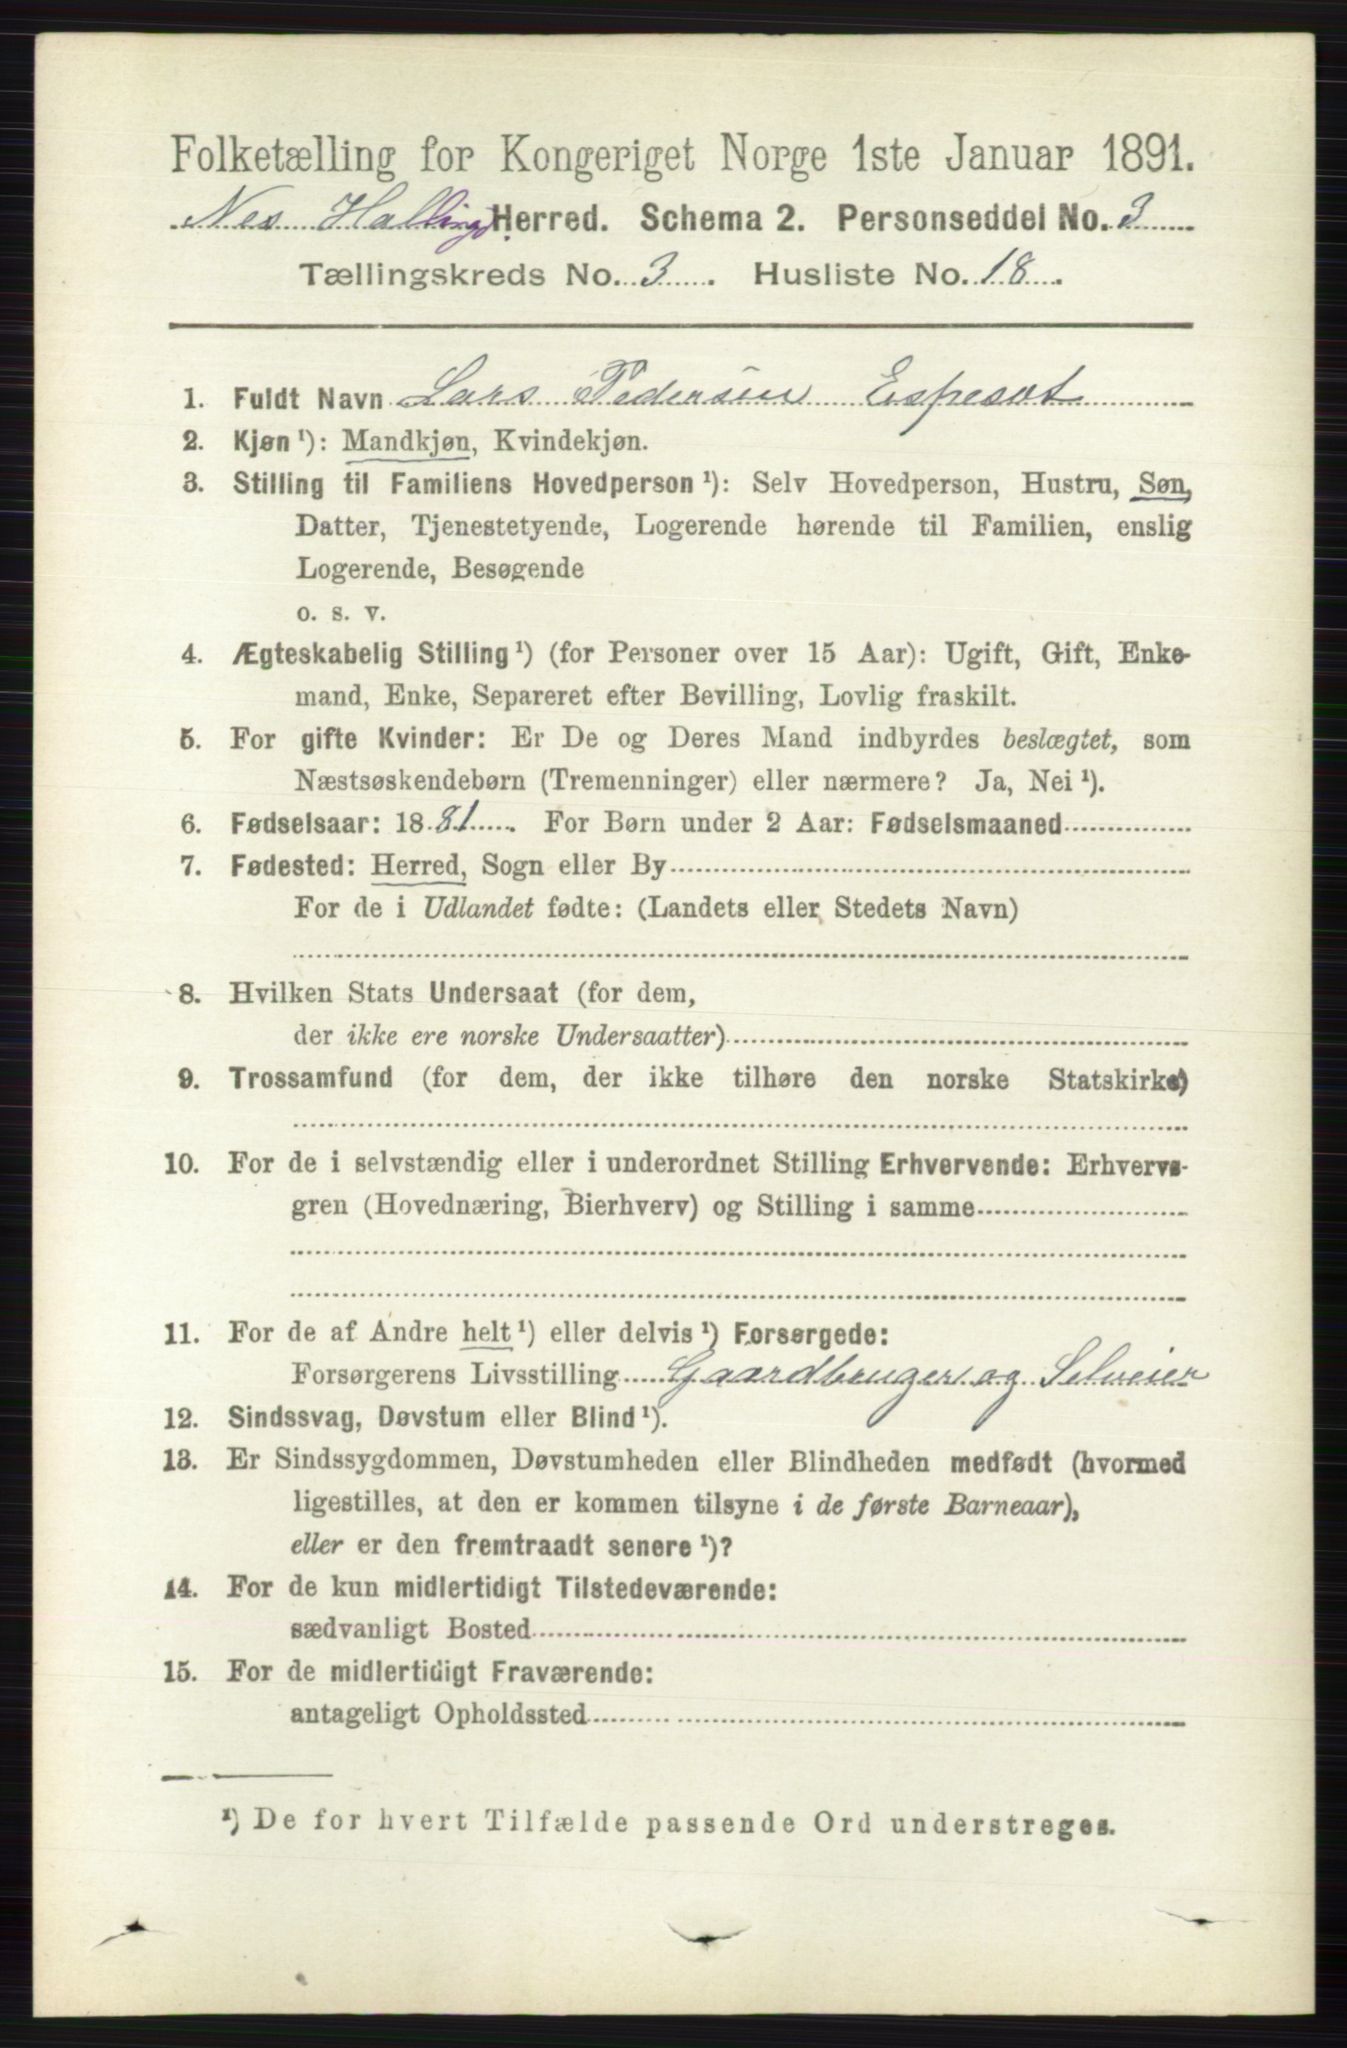 Folketælling for Kongeriget Norge 1ste Januar 1891.
Nes Hallingd. Herred. Schema 2. Personseddel No. 3
Tællingskreds No. 3. Husliste No. 18.
1. Fuldt Navn Lars Pedersen Espeset
2. Kjøn ¹): Mandkjøn, Kvindekjøn.
3. Stilling til Familiens Hovedperson ¹): Selv Hovedperson, Hustru, Søn,
Datter, Tjenestetyende, Logerende hørende til Familien, enslig
Logerende, Besøgende
o. s. v.
4. Ægteskabelig Stilling ¹) (for Personer over 15 Aar): Ugift, Gift, Enke-
mand, Enke, Separeret efter Bevilling, Lovlig fraskilt.
5. For gifte Kvinder: Er De og Deres Mand indbyrdes beslægtet, som
Næstsøskendebørn (Tremenninger) eller nærmere? Ja, Nei ¹).
6. Fødselsaar: 1881. For Børn under 2 Aar: Fødselsmaaned
7. Fødested: Herred, Sogn eller By
For de i Udlandet fødte: (Landets eller Stedets Navn)
8. Hvilken Stats Undersaat (for dem,
der ikke ere norske Undersaatter)
9. Trossamfund (for dem, der ikke tilhøre den norske Statskirke)
10. For de i selvstændig eller i underordnet Stilling Erhvervende: Erhvervs-
gren (Hovednæring, Bierhverv) og Stilling i samme
11. For de af Andre helt ¹) eller delvis ¹) Forsørgede:
Forsørgerens Livsstilling Gaardbruger og Selveier
12. Sindssvag, Døvstum eller Blind ¹).
13. Er Sindssygdommen, Døvstumheden eller Blindheden medfødt (hvormed
ligestilles, at den er kommen tilsyne i de første Barneaar),
eller er den fremtraadt senere ¹)?
14. For de kun midlertidigt Tilstedeværende:
sædvanligt Bosted
15. For de midlertidigt Fraværende:
antageligt Opholdssted
¹) De for hvert Tilfælde passende Ord understreges.